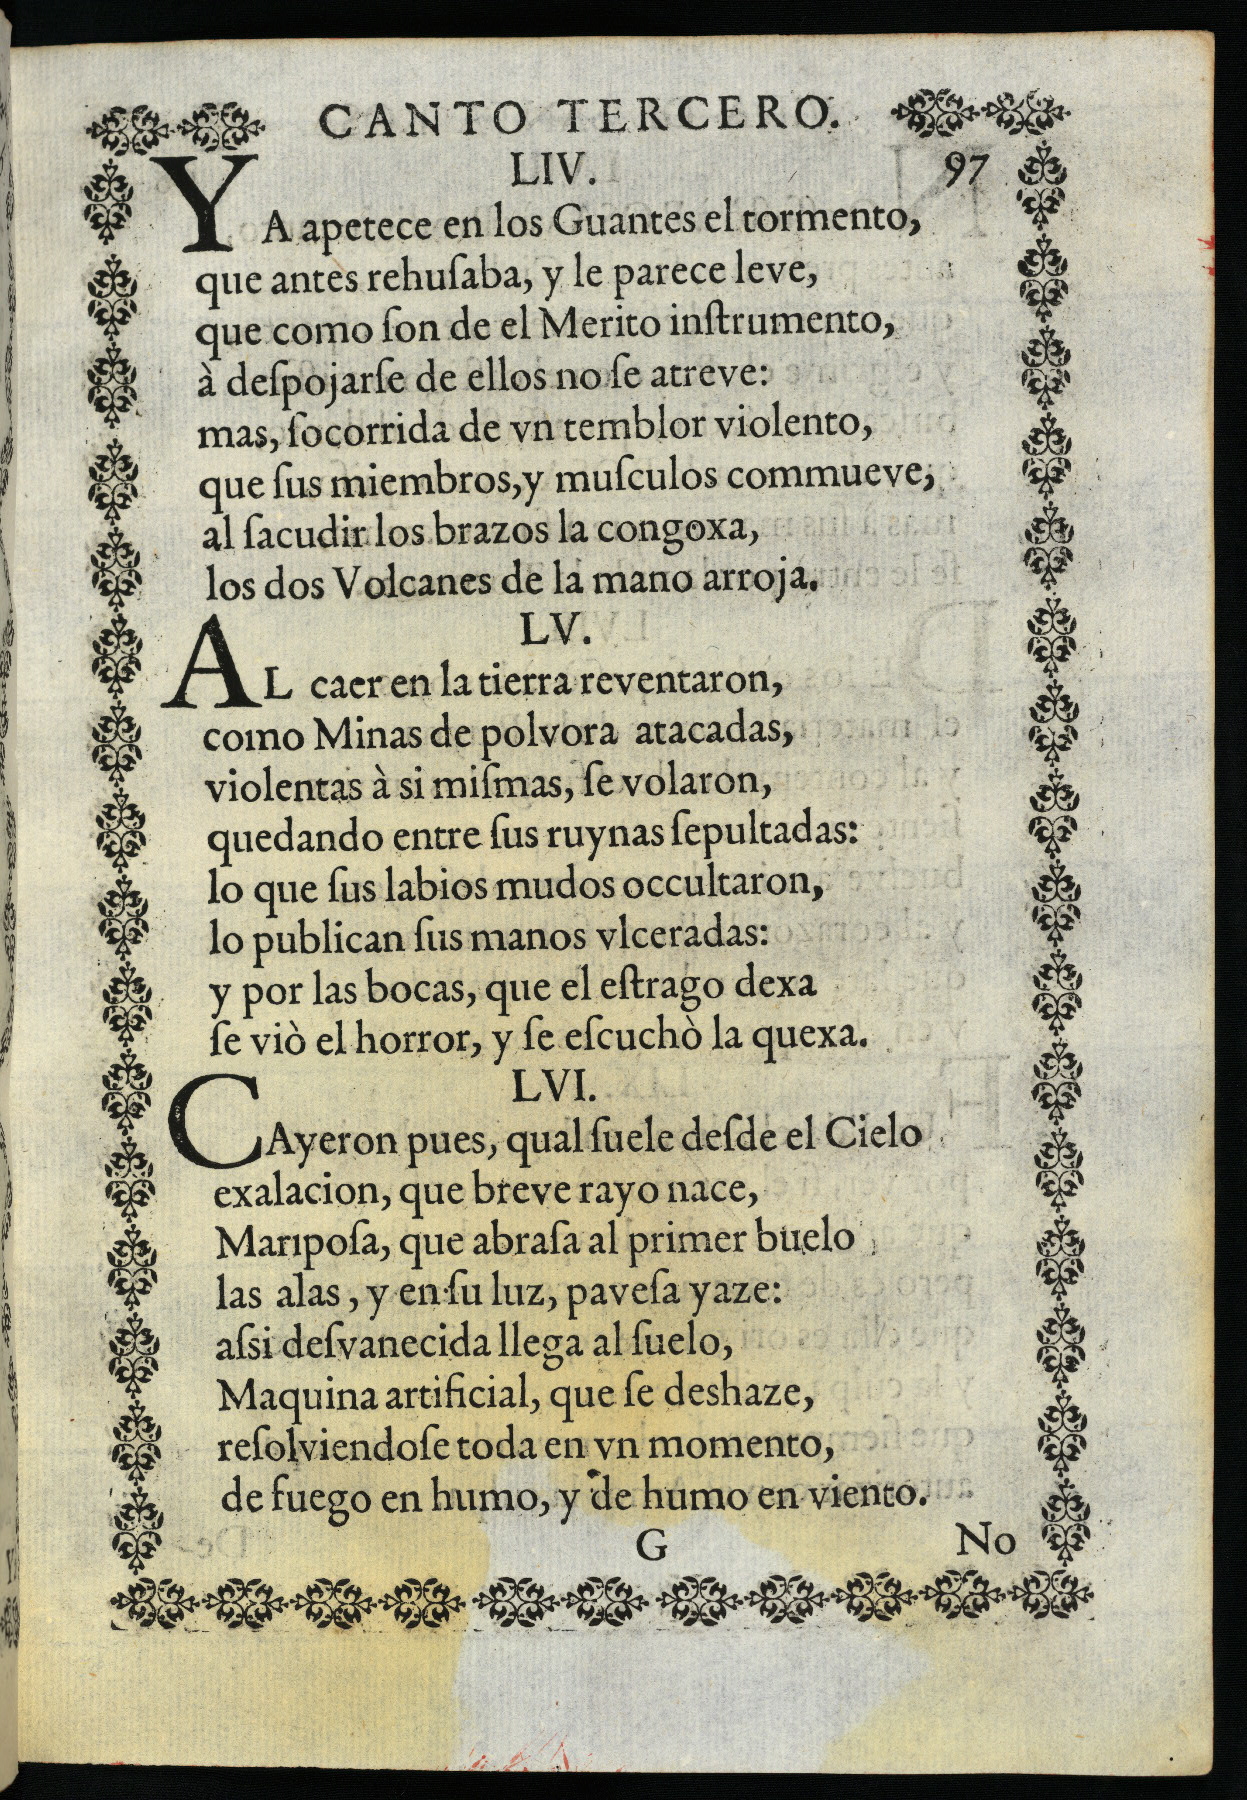 CANTO TERCERO.
LIV. 97
YA apetece en los Guantes el tormento,
que antes rehuſaba, y le parece leve,
que como ſon de el Merito inſtrumento,
à deſpojarſe de ellos no ſe atreve:
mas, ſocorrida de vn temblor violento,
que ſus miembros, y muſculos commueve,
al ſacudir los brazos la congoxa,
los dos Volcanes de la mano arroja.
LV.
AL caer en la tierra reventaron,
como Minas de polvora atacadas,
violentas à si miſmas, ſe volaron,
quedando entre ſus ruynas ſepultadas:
lo que ſus labios mudos occultaron,
lo publican ſus manos vlceradas:
y por las bocas, que el eſtrago dexa
ſe viò el horror, y ſe eſcuchò la quexa.
LVI.
CAyeron pues, qual ſuele deſde el Cielo
exalacion, que breve rayo nace,
Maripoſa, que abraſa al primer buelo
las alas, y en ſu luz, paveſa yaze:
aſsi deſvanecida llega al ſuelo,
Maquina artificial, que ſe deshaze,
reſolviendoſe toda en vn momento,
de fuego en humo, y de humo en viento.
G No